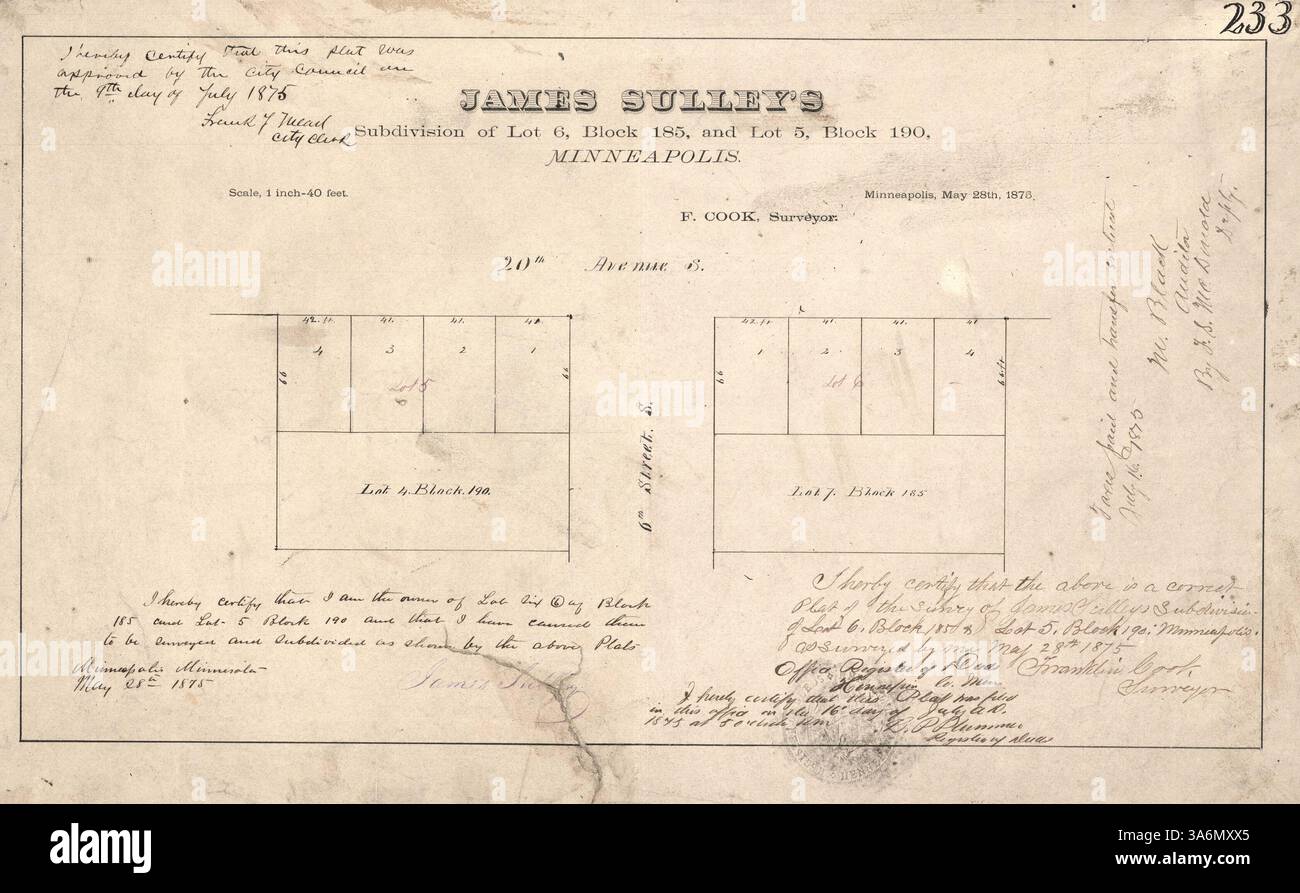 233
I hereby certify that this plat was
approved by the City Council on
the 9th day of July 1875
Frank
City Clerk
JAMES SULLEY'S
Subdivision of Lot 6, Block 185, and Lot 5, Block 190,
MINNEAPOLIS.
Scale, 1 inch-40 feet.
Minneapolis, May 28th, 1875.
F. COOK, Surveyor.
20th Avenue S.
42.ft. 41. 41. 41.
4 3 2 1
66 Lot 5 66
Lot 4. Block. 190.
6th Street. S.
42.ft. 41. 41. 41
1 2 3 4
66 Lot 6 66 ft
Lot 7. Block 185
Taxes paid and transfer entered
July 16 1875
M. Black
Auditor
By F. S. McDonald
Depty.
I hereby certify that I am the owner of Lot six (6) of Block
185 and Lot 5 Block 190 and that I have caused them
to be surveyed and subdivided as shown by the above Plats
Minneapolis Minnesota
May 28th 1875
James Sulley
I herby certify that the above is a correct
Plat of the survey of James Culleys Subdivision
of Lot 6. Block 185 & Lot 5. Block 190. Minneapolis.
Surveyed by me May 28th 1875
Franklin Cook.
Surveyor
Office Register of Deeds
Hennepin Co. Minn
I hereby certify that this Plat was filed
in this office on the 16 day of July A.D.
1875 at 5 o'clock P.M
Plummer
Register of Deeds
alamy
Image ID: 3A6MXX5
www.alamy.com